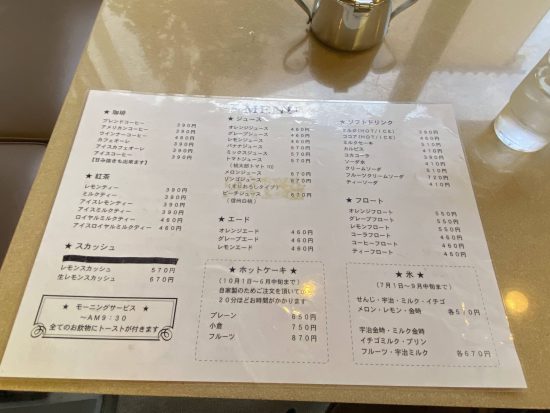 MENU
★ 珈琲
ブレンドコーヒー 390円
アメリカンコーヒー 390円
ウインナーコーヒー 460円
カフェオーレ 390円
アイスカフェオーレ 390円
アイスコーヒー 390円
【甘み抜きも出来ます】
★ 紅茶
レモンティー 390円
ミルクティー 390円
アイスレモンティー 390円
アイスミルクティー 390円
ロイヤルミルクティー 460円
アイスロイヤルミルクティー 460円
★ スカッシュ
レモンスカッシュ 570円
生レモンスカッシュ 670円
★ モーニングサービス
～AM9:30
全てのお飲物にトーストが付きます
★ ジュース
オレンジジュース 460円
グレープジュース 460円
レモンジュース 460円
バナナジュース 670円
ミックスジュース 670円
トマトジュース 570円
(桃太郎トマト 10)
メロンジュース 670円
リンゴジュース 670円
(すりおろしタイプ)
ピーチジュース 670円
(信州白桃)
★ エード
オレンジエード 460円
グレープエード 460円
レモンエード 460円
★ ホットケーキ ★
(10月1日～6月中旬まで)
自家製のためご注文を頂いて
20分ほどお時間がかかります
プレーン 650円
小倉 750円
フルーツ 870円
★ ソフトドリンク
ミルク(HOT/ICE) 390円
ココア(HOT/ICE) 460円
ミルクセーキ 510円
カルピス 410円
コカコーラ
ソーダ水
クリームソーダ
フルーツクリームソーダ 720円
ティーソーダ 410円
★ フロート
オレンジフロート 550円
グレープフロート 550円
レモンフロート 550円
コーラフロート
コーヒーフロート
ティーフロート
★ 氷 ★
(7月1日～9月中旬まで)
せんじ・宇治・ミルク・イチゴ
メロン・レモン・金時 各570円
宇治金時・ミルク金時
イチゴミルク・プリン
フルーツ・宇治ミルク 各670円